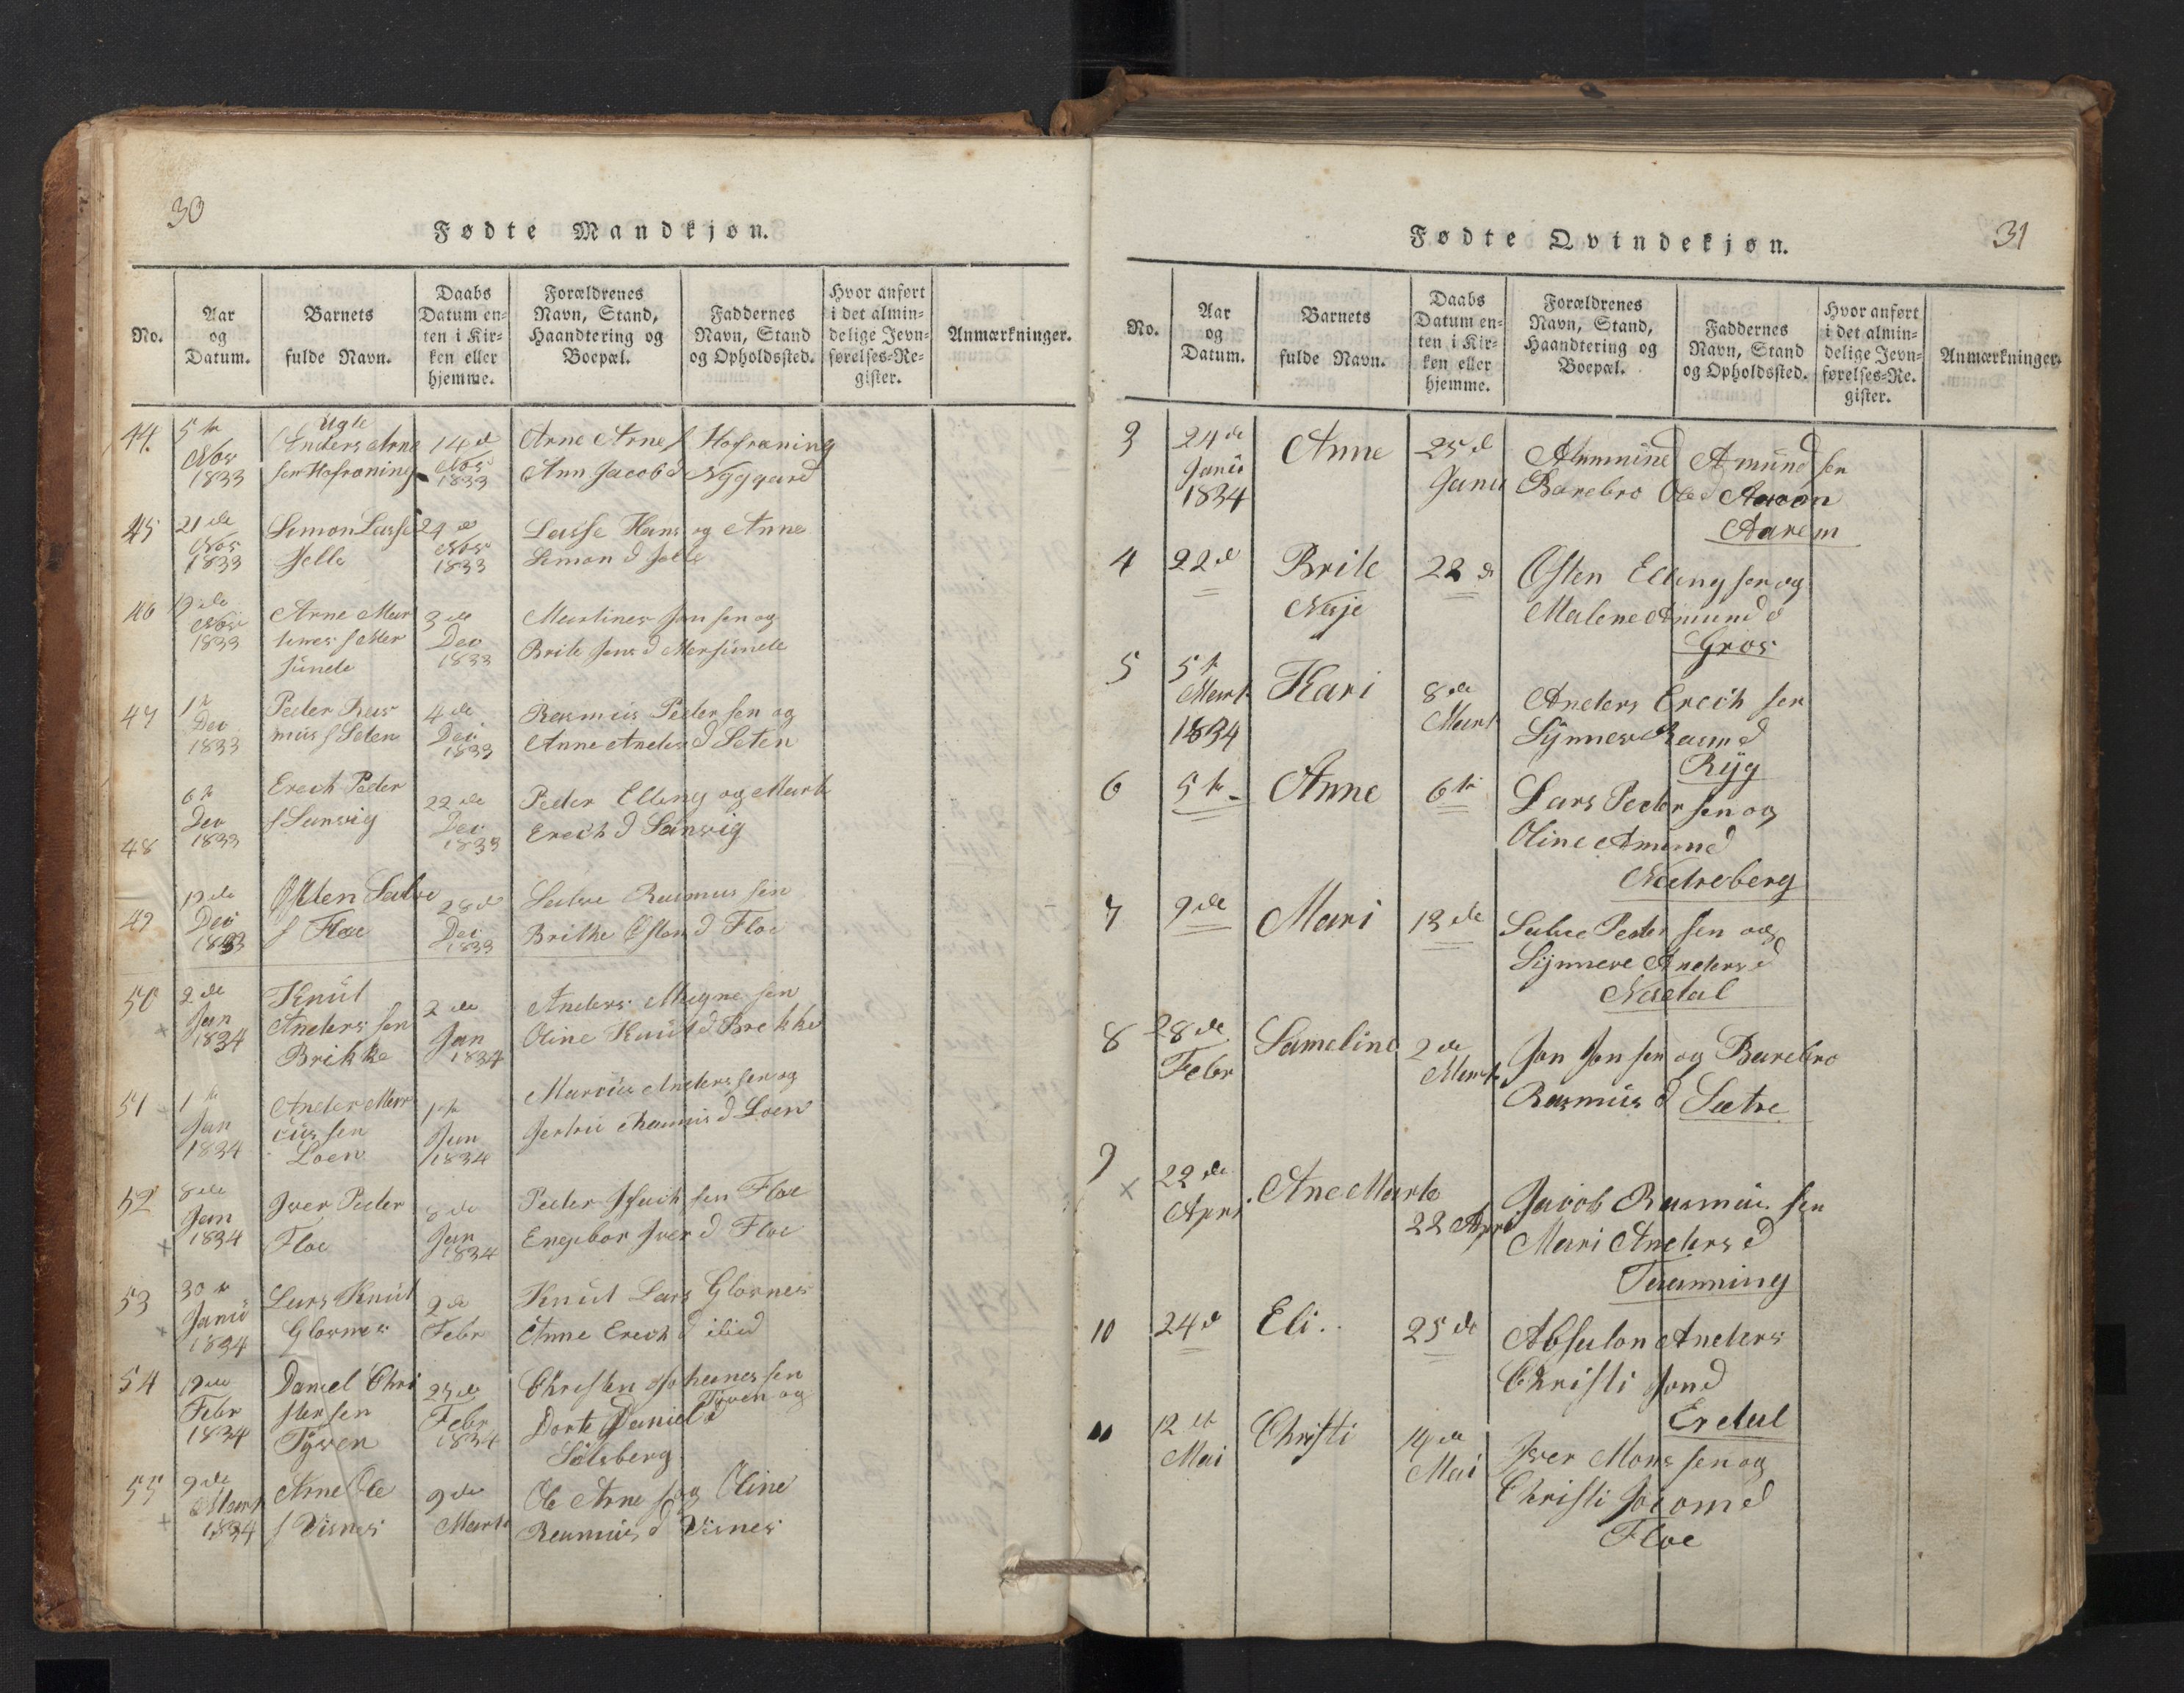 30
Fødte Mandkjøn.
No.
Aar
og
Datum.
Barnets
fulde Navn.
Daabs
Datum en-
ten i Kir-
ken eller
hjemme.
Forældrenes
Navn, Stand,
Haandtering og
Boepæl.
Faddernes
Navn, Stand
og Opholdssted.
Hvor anført
i det almin-
delige Jevn-
førelses-Re-
gister.
Anmærkninger.
44.
5te
Nov
1833
Ugte
Anders Arne
sen Hofræning
14d
Nov
1833
Arne Arne s Hofræning
Ann Jacob d Nyggaard
45
21de
Nov
1833
Simon Lasse
Jelle
24de
Nov
1833
Lasse Hans og Anne
Simon d Jelle
46
Nov
1833
Arne Mar
tines s Mer
sunde
3de
Dec
1833
Martines Jen sen og
Brite Jens d Mersunde
47
1te
Dec
1833
Peder Ras
mus s Seten
4de
Dec
1833
Rasmus Peder sen og
Anne Anders d Seten
48
6te
Dec
1833
Erech Peder
s Sanvig
22de
Dec
1833
Peder Elling og Marte
Erech d Sanvig
49
Dec
1833
Østen Salve
s Floe
28d
Dec
1833
Salve Rasmus sen
Brithe Østen d Floe
50
2de
Jan
1834
Knut
Anders sen
Brikke
2de
Jan
1834
Anders Magne sen
Oline Knut d Brekke
51
1te
Jan
1834
Ander Mar
cus sen
Loen
1te
Jan
1834
Marcus Anders sen og
Jertru Rasmus d Loen
52
8de
Jan
1834
Iver Peder
Floe
8de
Jan
1834
Peder Isach sen Floe
Engebor Iver d Floe
53
30te
Janu
1834
Lars Knut
Glosnes
2de
Febr
Knut Lars Glosnes
Anne Erech d ibid
54
Febr
1834
Daniel Chri
sten sen
Tyven
23de
Febr
1834
Christen Johanes sen
Tyven og
Dorte Daniel d
Solsberg
55
9de
Mart
1834
Arne Ole
s Visnes
9de
Marts
Ole Arne s og Oline
Rasmus d Visnes
31
Fødte Qvindekjøn.
No.
Aar
og
Datum.
Barnets
fulde Navn.
Daabs
Datum en-
ten i Kir-
ken eller
hjemme.
Forældrenes
Navn, Stand,
Haandtering og
Boepæl.
Faddernes
Navn, Stand
og Opholdssted.
Hvor anført
i det almin-
delige Jevn-
førelses-Re-
gister.
Anmærkninger.
3
24de
Janu
1834
Anne
25d
Janu
Ammund Amund sen
Barebro Ole d
Aarem
4
22d
Brite
Nesje
22d
Østen Elling sen og
Malene Amund d
Gros
5
5te
Mart
1834
Kari
8de
Mart
Anders Erech sen
Synneve Rasm d
Ryg
6
5te
Anne
6te
Lars Peder sen og
Oline Amund
Nedreberg
7
9de
Mari
13de
Salve Peder sen og
Synneve Anders d
Nesdal
8
28de
Febr
Sameline
2de
Marts
Jon Jon sen og Barebro
Rasmus d Sætre
9
22de
Apri
Ane Marte
22 Apri
Jacob Rasmus sen
Mari Anders d
Taanning
10
24d
Eli
25de
Absalon Anders
Christi Jon d
Erdal
11
12te
Mai
Christi
14de
Mai
Iver Mons sen og
Christi Jacom d
Floe